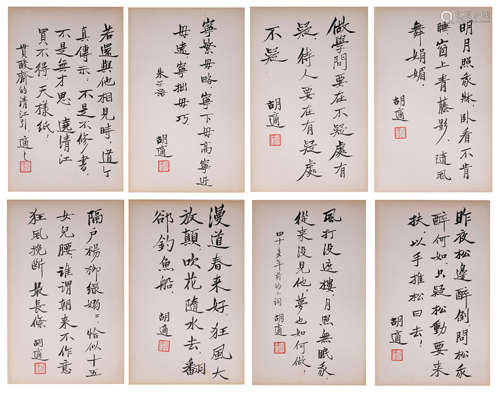 明月照我牀，卧看不肯
睡。窗上青藤影，隨風
舞娟媚。
胡適
做學問要在不疑處有
疑，待人要在有疑處
不疑
胡適
寧繁毋略，寧下毋高，寧近
毋遠，寧拙毋巧
朱子語
胡適
若還與他相見時，道个
真傳示：不是不修書，
不是無才思，遶清江
買不得天樣紙！
貫酸齋的清江引 適之
昨夜松邊醉倒，問松我
醉何如。只疑松動要來
扶，以手推松曰去！
胡適
風打没這樓，月照無眠我。
從來没見他，夢也如何做！
四十五年前的小詞
胡適
漫道春來好，狂風大
放顛，吹花隨水去，翻
卻釣魚船。
胡適
隔户楊柳弱嫋嫋，恰似十五
女兒腰。誰謂朝來不作意
狂風挽斷最長條
胡適